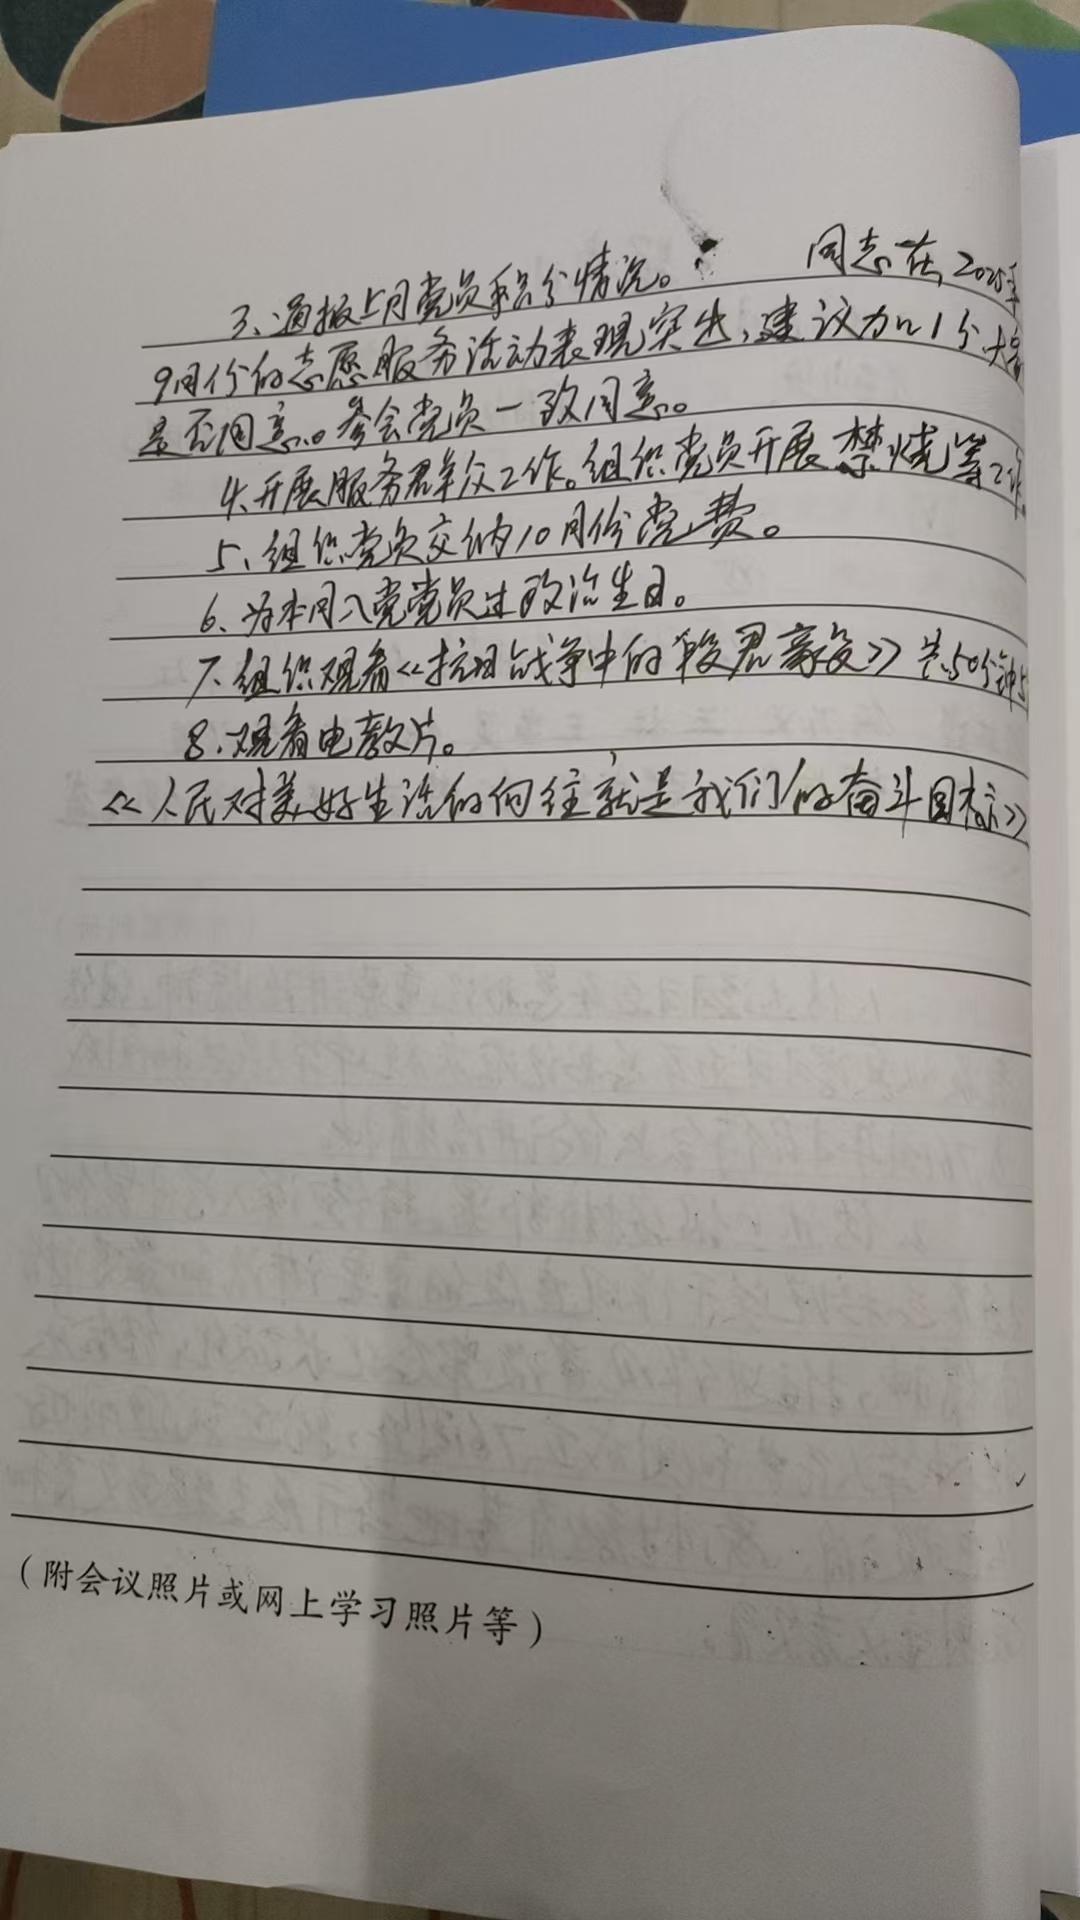 3、通报上月党员积分情况。 同志在2025年
9月份的志愿服务活动表现突出,建议加1分,大家
是否同意。参会党员一致同意。
4、开展服务群众工作。组织党员开展禁烧等工作
5、组织党员交纳10月份党费。
6、为本月入党党员过政治生日。
7、组织观看《抗日战争中的
8、观看电教片。
《人民对美好生活的向往就是我们的奋斗目标》
(附会议照片或网上学习照片等)